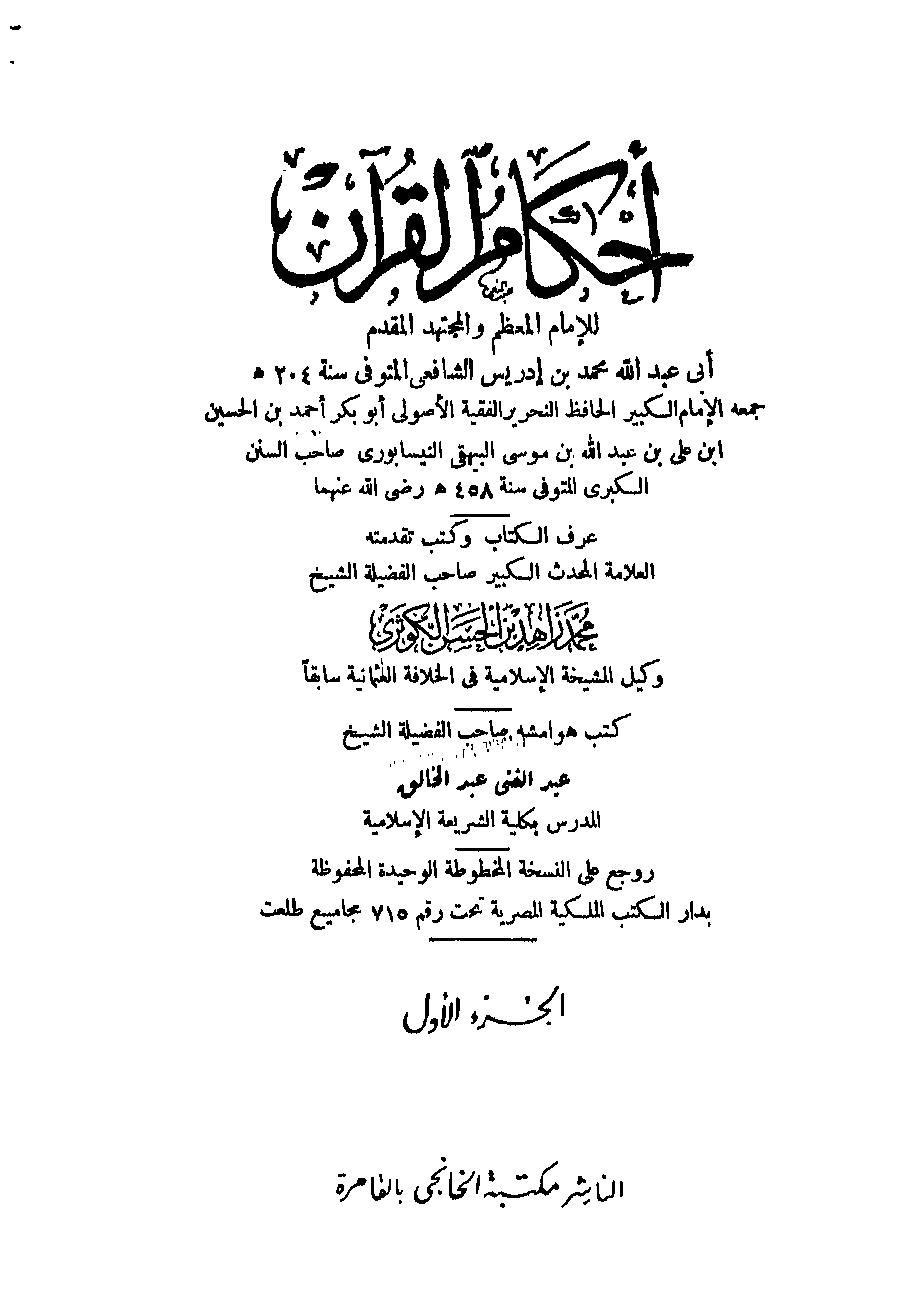 أحكام القرآن
للإمام المعظم والمجتهد المقدم
أبي عبد الله محمد بن إدريس الشافعي المتوفى سنة ٢٠٤ ه
جمعه الإمام الكبير الحافظ النحرير الفقية الأصولى أبو بكر أحمد بن الحسين
ابن على بن عبد الله بن موسى البيهقى النيسابورى صاحب السنن
الكبرى المتوفى سنة ٤٥٨ ه رضى الله عنهما
عرف الكتاب وكتب تقدمته
العلامة المحدث الكبير صاحب الفضيلة الشيخ
محمد زاهد بن الحسن الكوثرى
وكيل المشيخة الإسلامية فى الخلافة العثمانية سابقاً
كتب هوامشه صاحب الفضيلة الشيخ
عبد الغنى عبد الخالق
المدرس بكلية الشريعة الإسلامية
روجع على النسخة المخطوطة الوحيدة المحفوظة
بدار الكتب الملكية المصرية تحت رقم ٧١٥ مجاميع طلعت
الجزء الأول
الناشر مكتبة الخانجى بالقاهرة